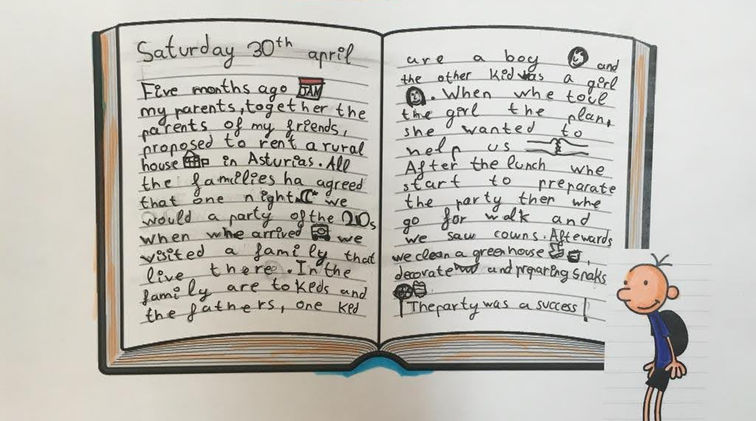 Saturday 30th april
Five months ago JAN
my parents, together the
parents of my friends,
proposed to rent a rural
house in Asturias. All
the families ha agreed
that one night we
would a party of the 20s
when whe arrived we
visited a family that
live there. In the
family are to keds and
the fathers, one ked
are a boy and
the other kid was a girl
. When whe toul
the girl the plan,
she wanted to
help us
After the lunch whe
start to preparate
the party ther whe
go for walk and
we saw couns. Aftewards
we clean a greenhouse ,
decorate and preparing snaks
The party was a success!